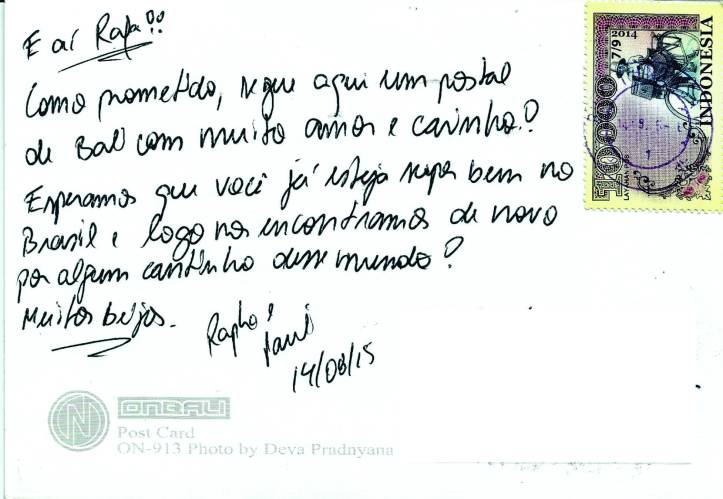 E aí Rafa!!
Como prometido, segue aqui um postal
de Bali com muito amor e carinho!
Esperamos que você já esteja super bem no
Brasil e logo nos encontramos de novo
por algum cantinho desse mundo!
Muitos beijos.
Rapha e
14/08/15
ONBALI
Post Card
ON-913 Photo by Deva Pradnyana
10000
17/9 2014
INDONESIA